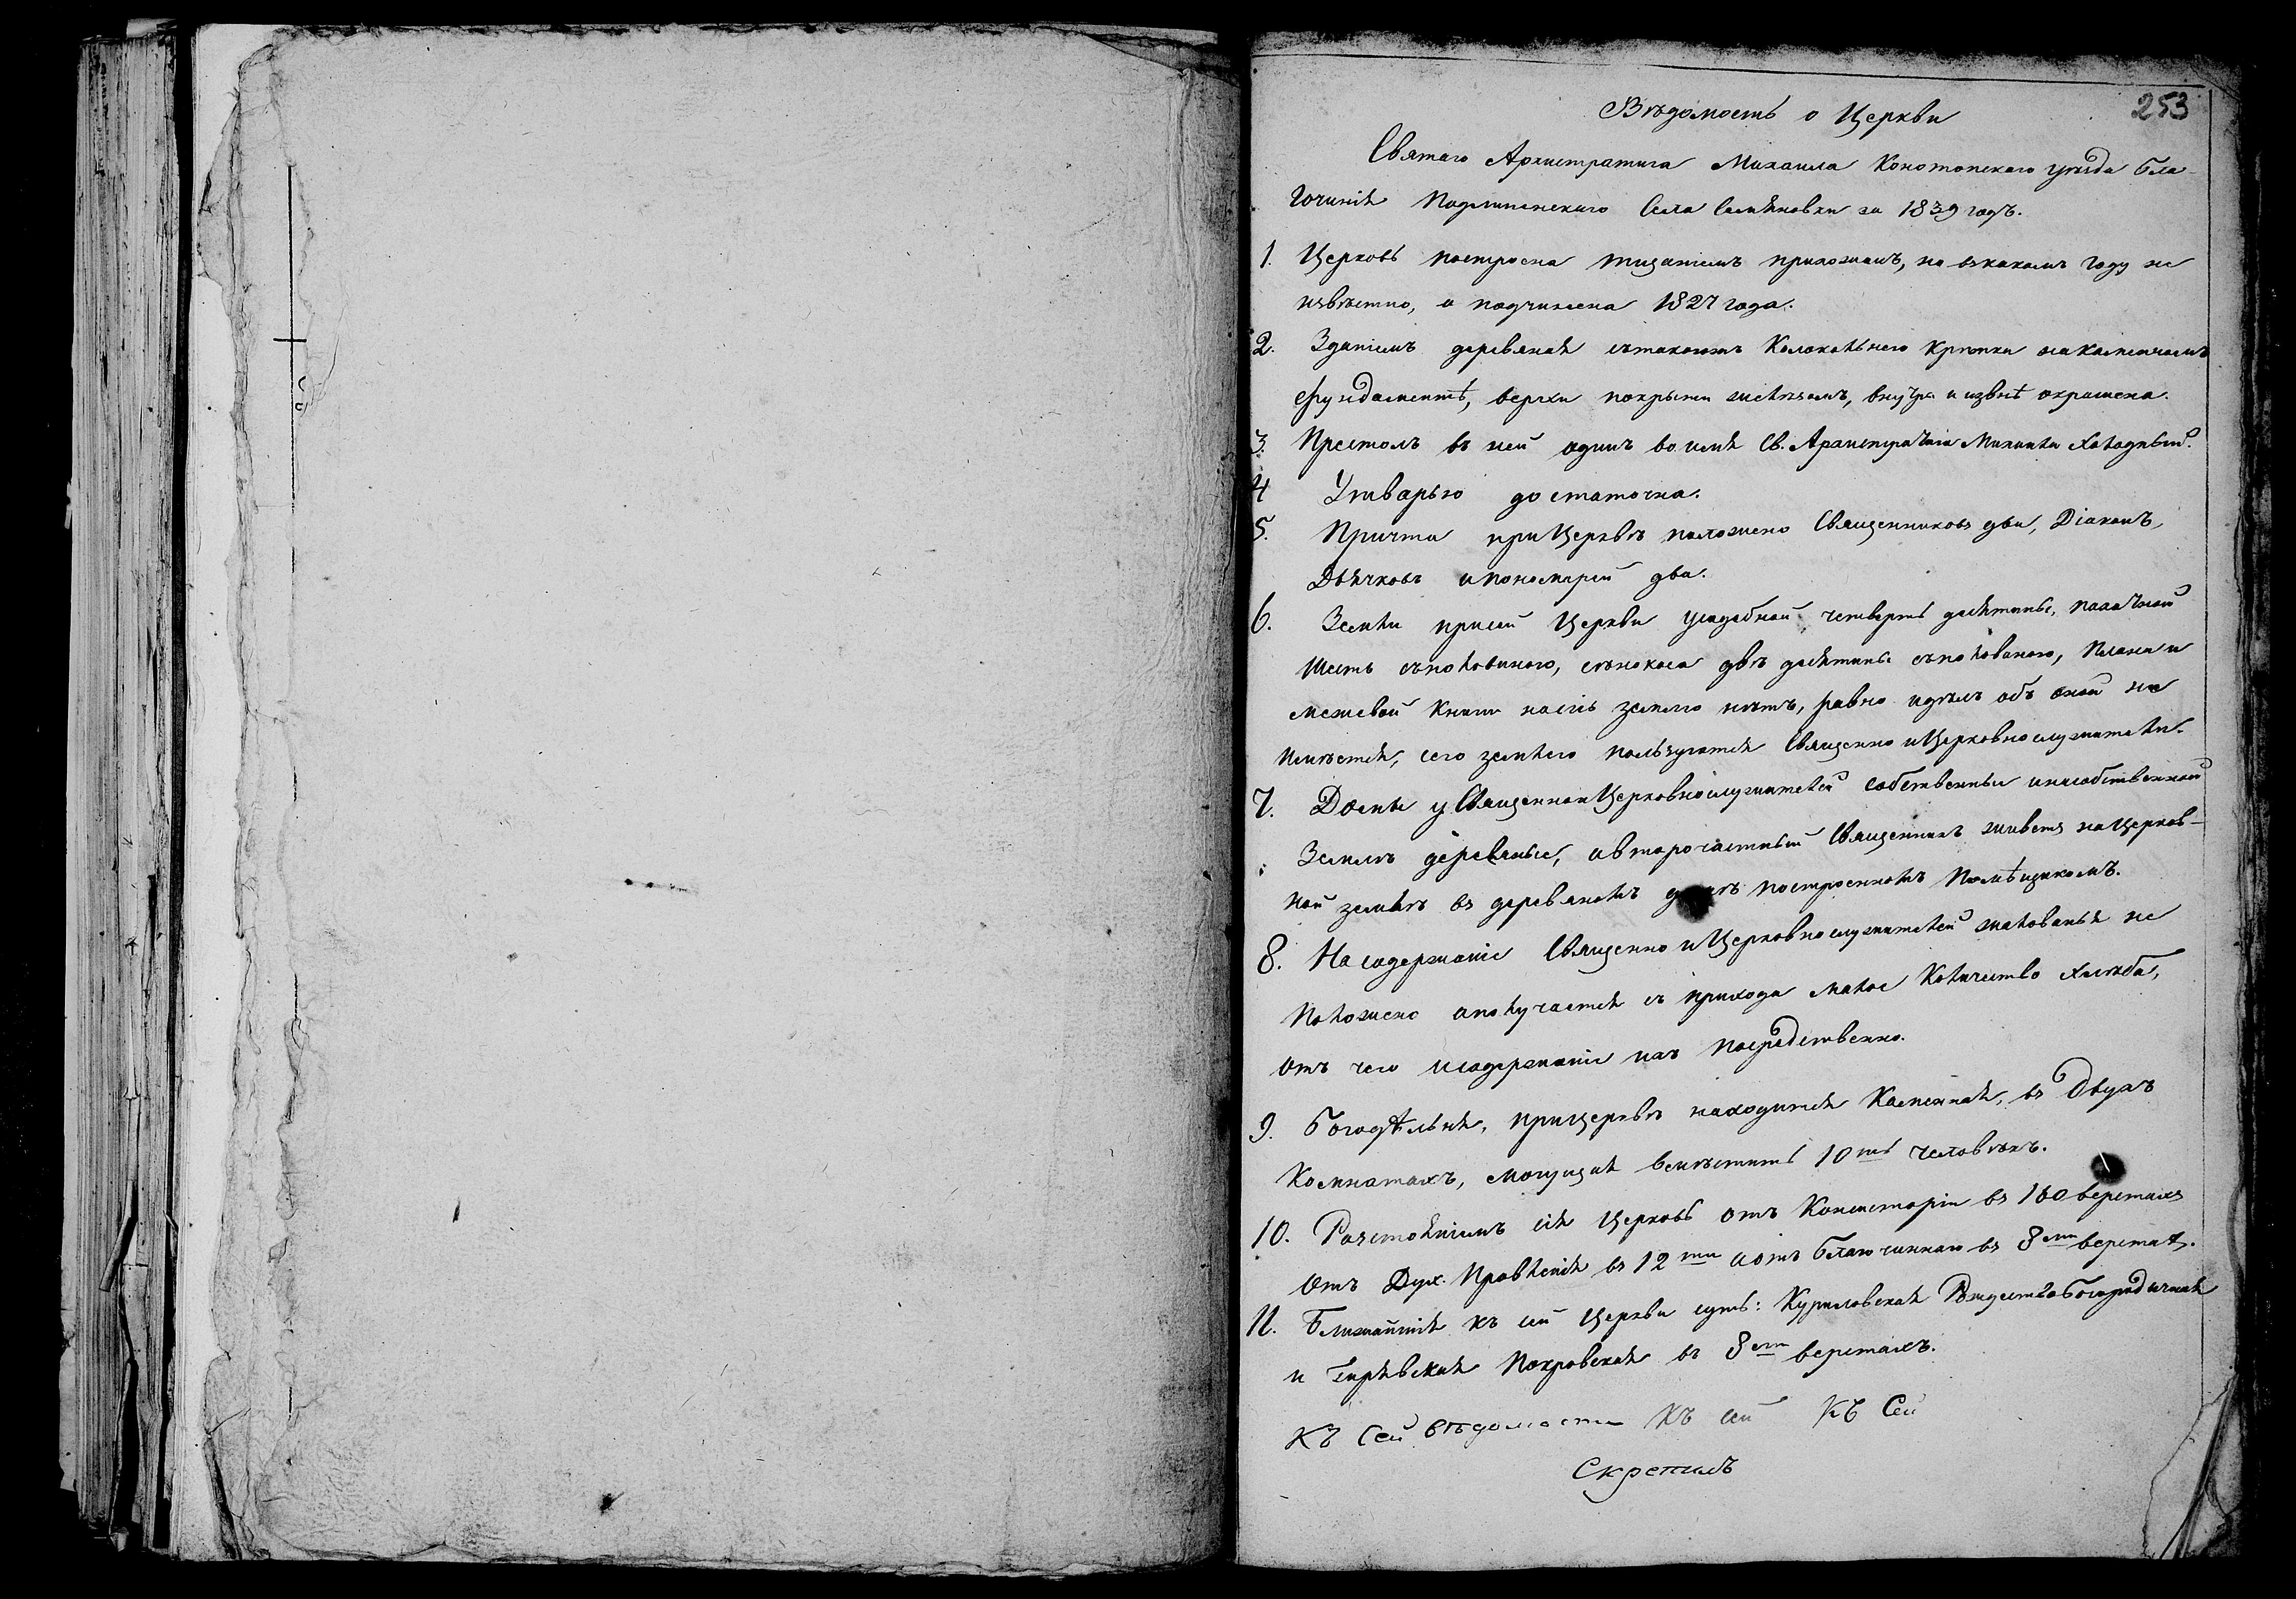 253
Вѣдомость о Церкви
Святаго Архистратига Михаила Конотопскаго уѣзда Бла-
гочинія Подлипенскаго Села Семяновки за 1839 годъ.
1. Церковь построена тщаніемъ прихожанъ, но въ какомъ году не
извѣстно, а починена 1827 года.
2. Зданіемъ деревяная съ такоюжъ Колокольнею крѣпка на каменномъ
фундаментѣ, верхи покрыти желѣзомъ, внутри и извнѣ окрашена.
3. Престолъ въ ней одинъ во имя Св. Архистратига Михаила холодный.
4 Утварью достаточна.
5. Причта при Церквѣ положено Священниковъ два, Діаконъ,
Дьячковъ и пономарей два.
6. Земли при сей Церкви усадебной четверть десятины, пахатной
шесть съ половиною, сѣнокоса двѣ десятины съ половиною, Плана и
межевой Книги на сію землю нѣтъ, равно и дѣлъ объ оной не
имѣется, сего землею пользуются Священно и Церковнослужители.
7. Домы у Священно и Церковнослужителей собственные и на собственной
Землѣ деревяные, а второчастный Священникъ живетъ на Церков-
ной землѣ въ деревяномъ построенномъ Помѣщикомъ.
8. На содержаніе Священно и Церковнослужителей жалованья не
положено а получается съ прихода малое Количество хлѣба,
отъ чего и содержаніе ихъ посредственно.
9. Богадѣльня, при церквѣ находится Каменная, въ Двухъ
Комнатахъ, могущая вмѣстить 10ть человѣкъ.
10. Разстояніемъ сія Церковь отъ Консисторіи въ 160 верстахъ
отъ Дух. Правленія въ 12ти и отъ Благочиннаго въ 8ми верстах.
11. Ближайшія къ сей Церкви суть: Куриловская Рождество Богородичная
и Гирявская Покровская въ 8ми верстахъ.
Къ Сей вѣдомости Къ сей Къ Сей
Скрепилъ